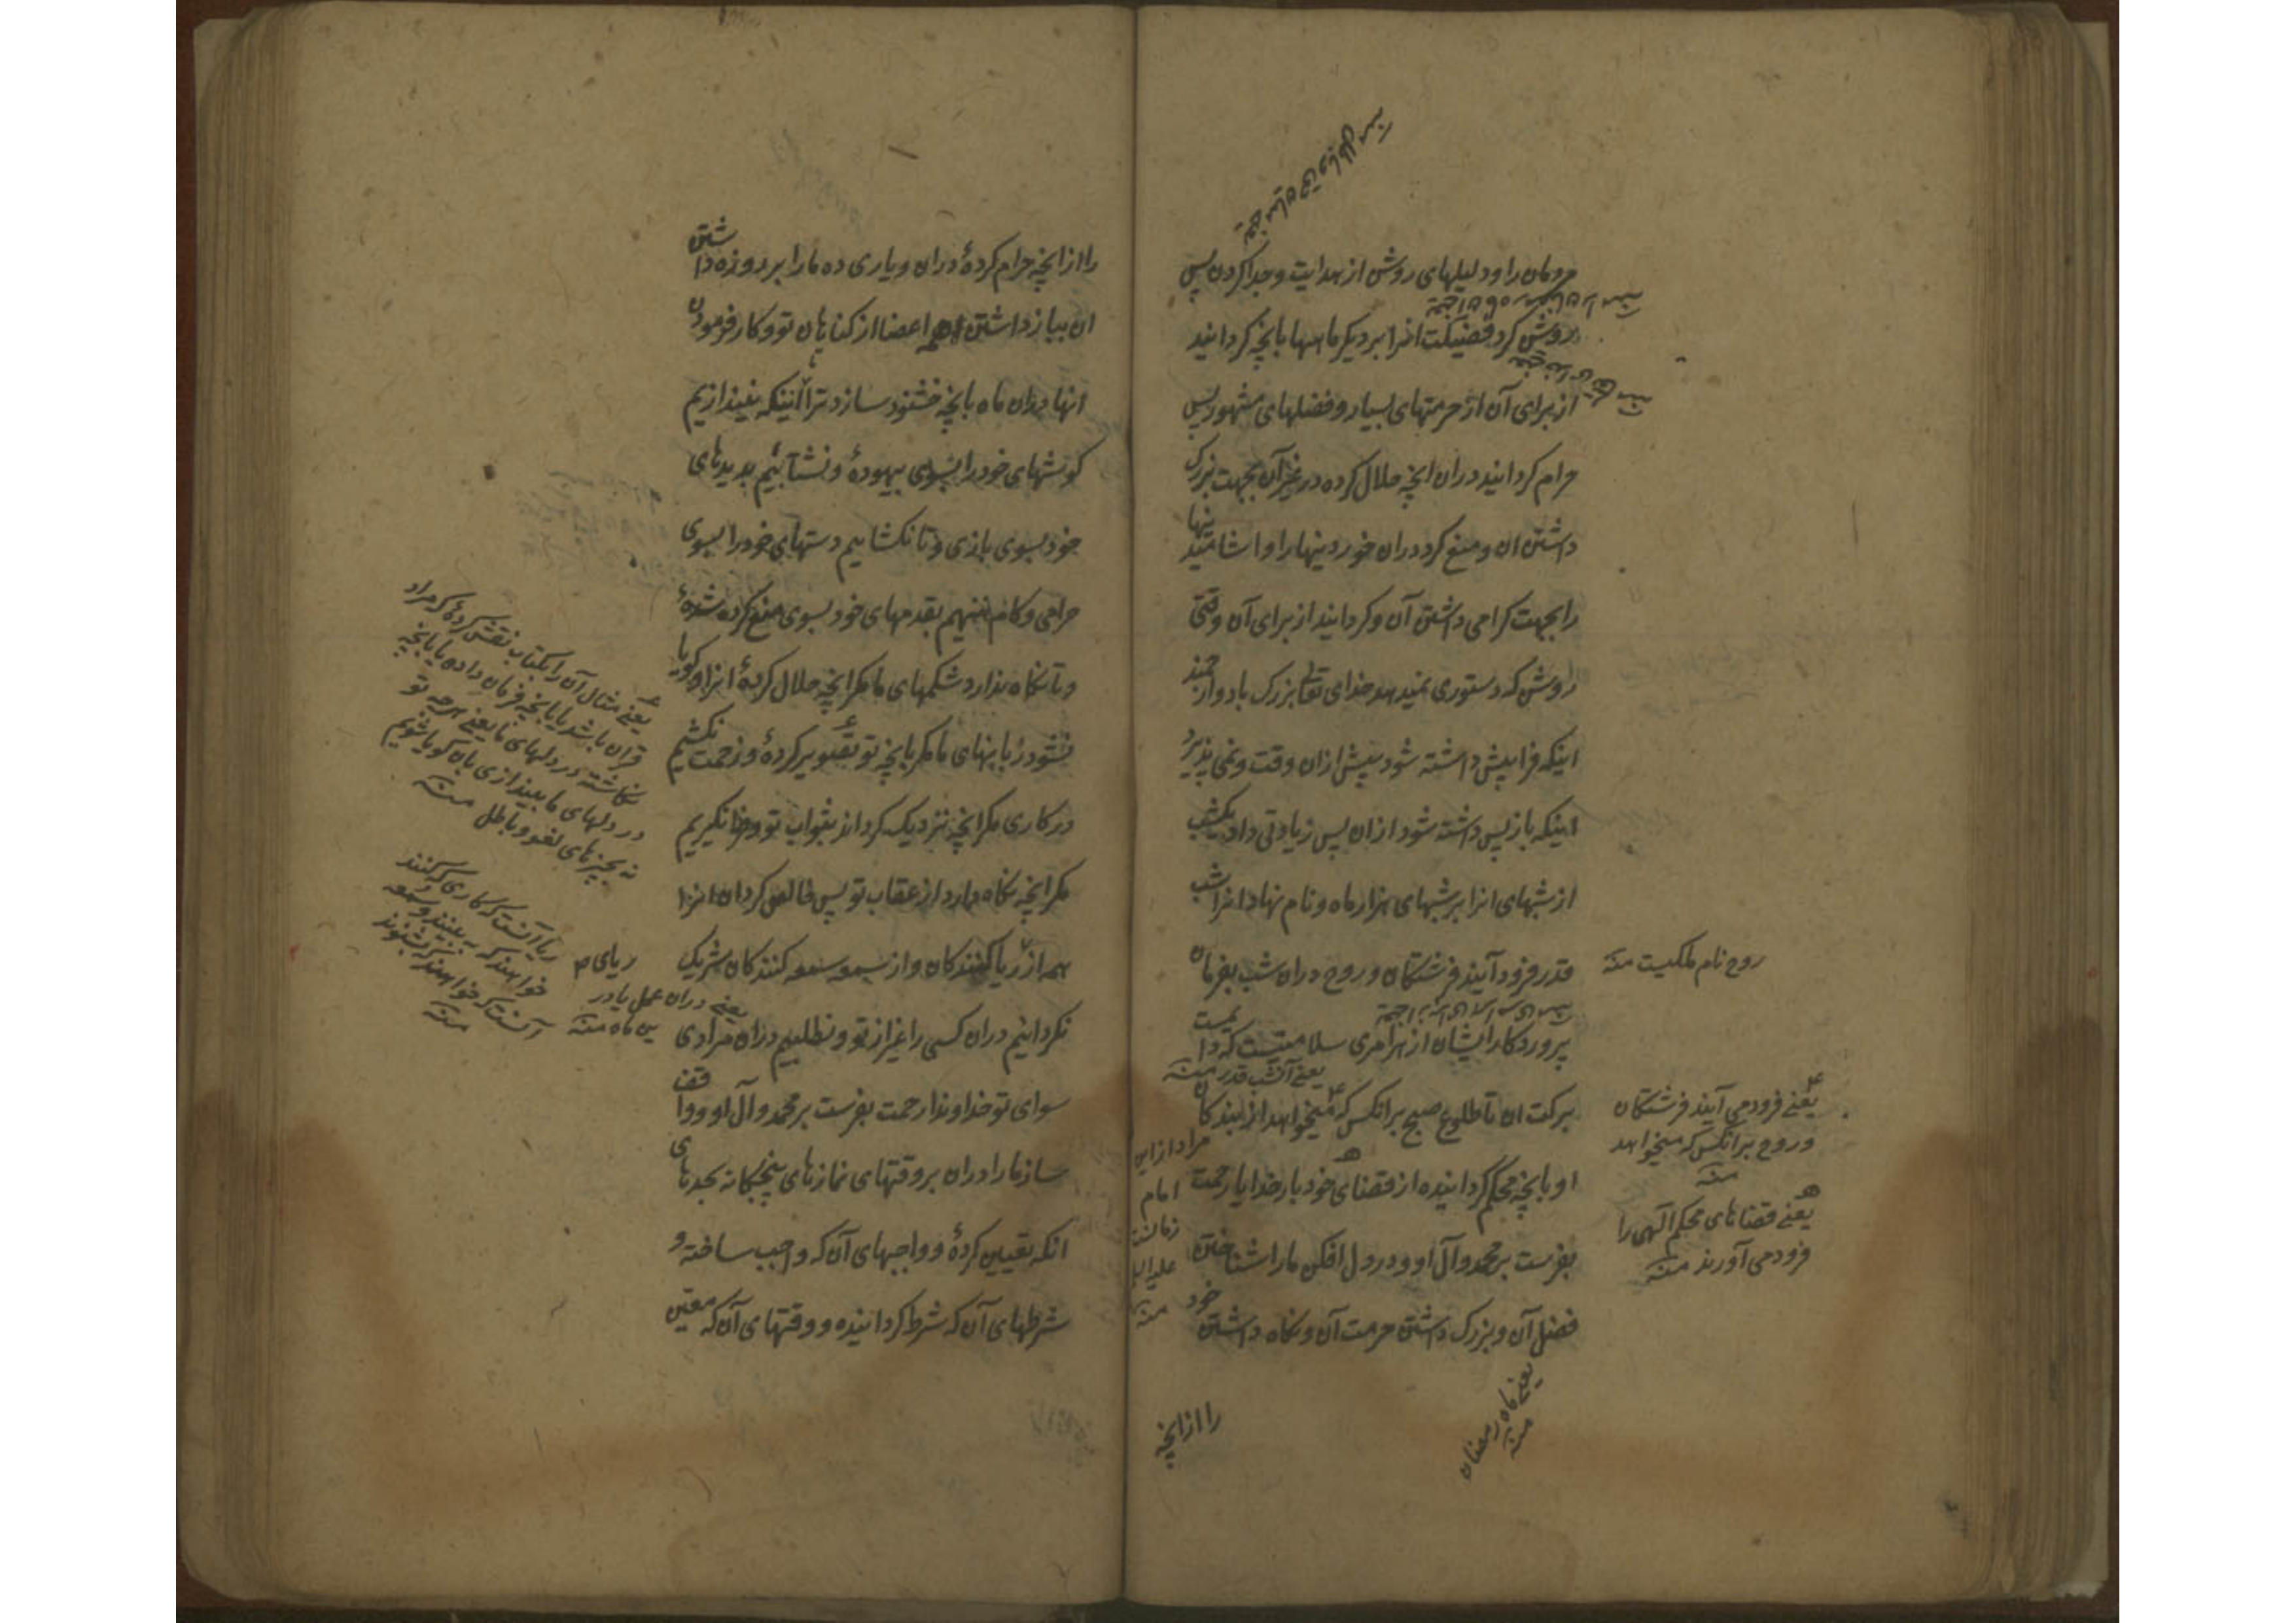 مردمان را و دلیلهای روشن از هدایت و جدا کردن پس
روشن کرد فضیلت انرا بر دیگر ماهها بانچه گردانید
از برای آن از حرمتهای بسیار و فضلهای مشهور پس
حرام گردانید دران انچه حلال کرده در غیر آن بجهت بزرگ
داشتن ان و منع کرد دران خوردینها را و اشامیدنیها
را بجهت گرامی داشتن آن و گردانید از برای آن وقتی
روشن که دستوری نمیدهد خدای تعالی بزرگ باد و ارجمند
اینکه فرا پیش داشته شود پیش ازان وقت و نمی پذیرد
اینکه باز پس داشته شود ازان پس زیادتی داد یکشب
از شبهای انرا بر شبهای هزار ماه و نام نهاد انرا شب
قدر فرود آیند فرشتگان و روح دران شب بفرمان
پروردگار ایشان از هر امری سلامتیست که دایمست
برکت ان تا طلوع صبح بر انکس که میخواهد از بندگان
او بانچه محکم گردانیده از قضای خود بار خدایا رحمت
بفرست بر محمد و آل او و در دل افکن ما را شناختن
فضل آن و بزرگ داشتن حرمت آن و نگاه داشتن خود
را از انچه
روح نام ملکیست منه
یعنی آنشب قدر منه
یعنی فرود می آیند فرشتگان
و روح بر انکس که میخواهد
منه
یعنی قضاهای محکم الهی را
فرود می آورند منه
مراد ازاین
امام
زمانست
منه
یعنی ماه رمضان
منه
را از انچه حرام کردهٔ دران و یاری ده ما را بر روزه داشتن
ان بباز داشتن اعضا از گناهان تو و کار فرمودن
انها دران ماه بانچه خشنود سازد ترا تا اینکه نیندازیم
گوشهای خود را بسوی بیهودهٔ و نشتابیم بدیدهای
خود بسوی بازی و تا نگشاییم دستهای خود را بسوی
حرامی و گام ننهیم بقدمهای خود بسوی منع کرده شدهٔ
و تا نگاه ندارد شکمهای ما مگر انچه حلال کردهٔ انرا و گویا
نشود زبانهای ما مگر بانچه تو تصویر کردهٔ و زحمت نکشیم
در کاری مگر انچه نزدیک گرداند بثواب تو و فرا نگیریم
مگر انچه نگاه دارد از عقاب تو پس خالص گردان انرا
همه از ریای ریا کنندگان و از سمعه سمعه کنندگان شریک
نگردانیم دران کسی را غیر از تو و نطلبیم دران مرادی
سوای تو خداوندا رحمت بفرست بر محمد و آل او و واقف
ساز ما را دران بر وقتهای نمازهای پنجگانه بحدهای
انکه تعیین کردهٔ و واجبهای آن که واجب ساخته و
شرطهای آن که شرط گردانیده و وقتهای آن که معین
یعنی مثال آن را بکتاب نقش کردهٔ که مراد
قران باشد یا بانچه فرمان داده یا بانچه
نگاشته در دلهای ما یعنی هر چه تو
در دلهای ما بیندازی بان گویا شویم
نه بچیزهای لغو و باطل منه
ریا آنست که کاری که کنند
خواهند که به بینند و سمعه
آنست که خواهند که بشنوند
منه
یعنی دران عمل یا در
این ماه منه